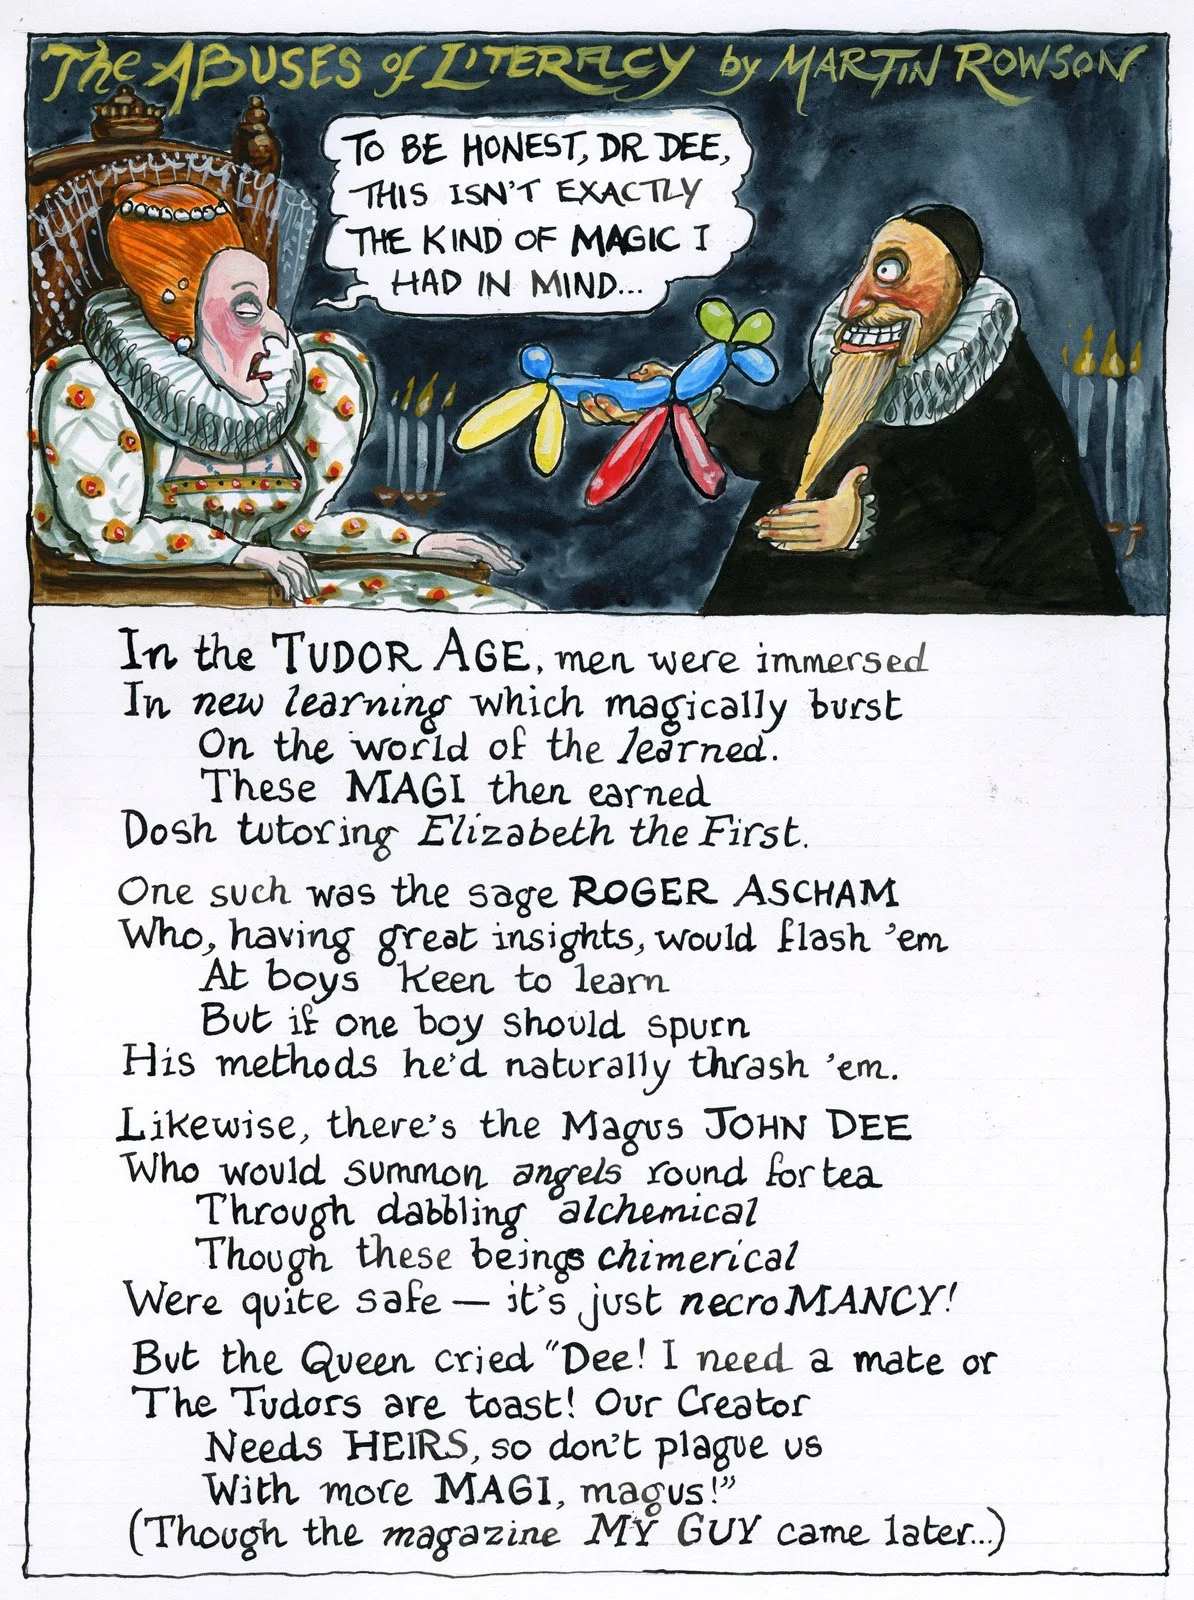 The ABUSES of LITERACY by MARTIN ROWSON
TO BE HONEST, DR DEE,
THIS ISN'T EXACTLY
THE KIND OF MAGIC I
HAD IN MIND...
In the TUDOR AGE, men were immersed
In new learning which magically burst
On the world of the learned.
These MAGI then earned
Dosh tutoring Elizabeth the First.
One such was the sage ROGER ASCHAM
Who, having great insights, would flash 'em
At boys keen to learn
But if one boy should spurn
His methods he'd naturally thrash 'em.
Likewise, there's the Magus JOHN DEE
Who would summon angels round for tea
Through dabbling alchemical
Though these beings chimerical
Were quite safe — it's just necroMANCY!
But the Queen cried "Dee! I need a mate or
The Tudors are toast! Our Creator
Needs HEIRS, so don't plague us
With more MAGI, magus!"
(Though the magazine MY GUY came later...)